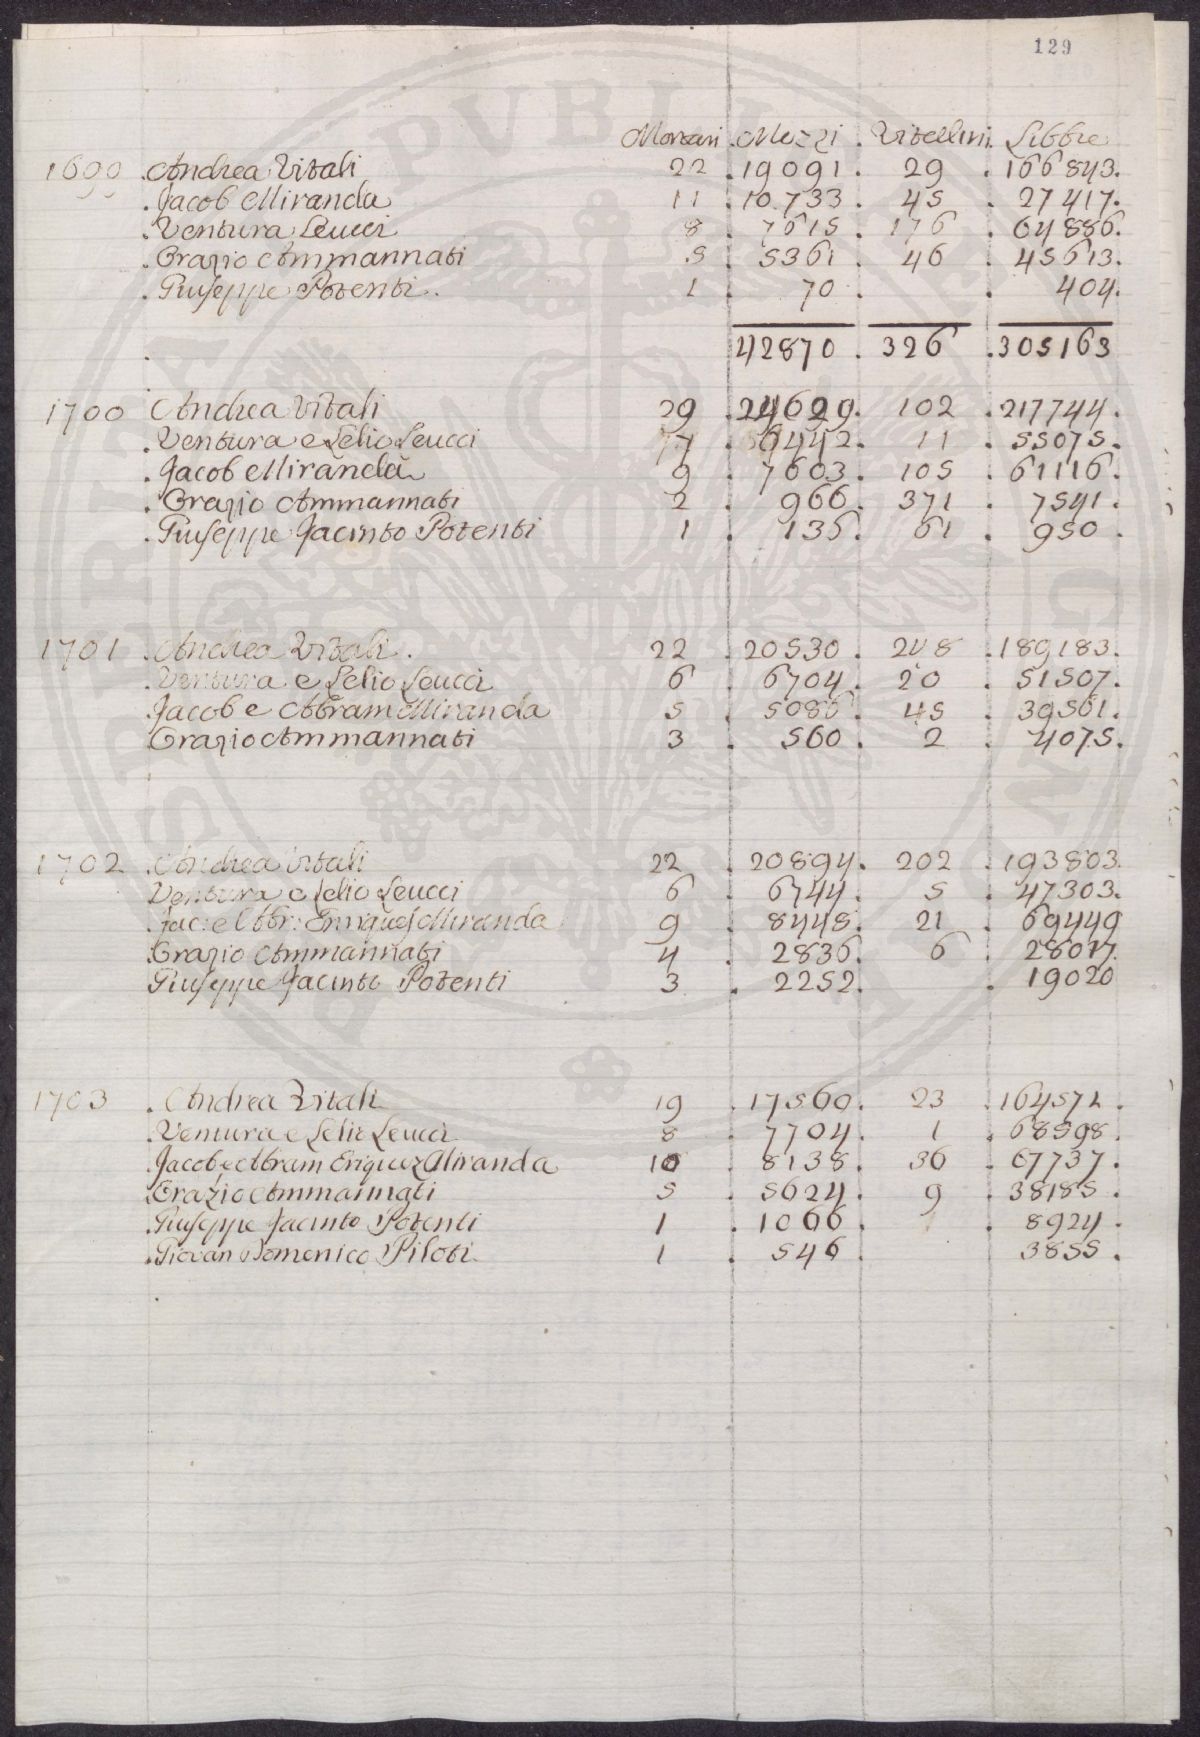 129
Mortari . Mezzi . Vitellini . Libbre
1699 . Andrea Vitali 22 . 19091 . 29 . 166843 .
. Jacob Miranda 11 . 10733 . 45 . 27417 .
. Ventura Leucci 8 . 7615 . 176 . 64886 .
. Orazio Ammannati 5 . 5361 . 46 . 45613 .
. Giuseppe Potenti . 1 . 70 . . 404 .
42870 . 326 . 305163
1700 Andrea Vitali 29 . 24629 . 102 . 217744 .
. Ventura e Lelio Leucci 7 . 6442 . 11 . 55075 .
. Jacob Miranda 9 . 7603 . 105 . 61116 .
. Orazio Ammannati 2 . 966 . 371 . 7541 .
. Giuseppe Jacinto Potenti 1 . 136 . 61 . 950 .
1701 . Andrea Vitali . 22 . 20530 . 248 . 189183 .
. Ventura e Lelio Leucci 6 . 6704 . 20 . 51507 .
. Jacob e Abram Miranda 5 . 5086 . 45 . 39561 .
Orazio Ammannati 3 . 560 . 2 . 4075 .
1702 . Andrea Vitali 22 . 20894 . 202 . 193803 .
Ventura e Lelio Leucci 6 . 6744 . 5 . 47303 .
. Jac: e Abr: Enriques Miranda 9 . 8448 . 21 . 69449
. Orazio Ammannati 4 . 2836 . 6 . 28017 .
. Giuseppe Jacinto Potenti 3 . 2252 . . 19020
1703 . Andrea Vitali 19 . 17560 . 23 . 164572 .
. Ventura e Lelio Leucci 8 . 7704 . 1 . 68598 .
. Jacob e Abram Eriquez Miranda 10 . 8138 . 36 . 67737 .
. Orazio Ammannati 5 . 5624 . 9 . 38185 .
. Giuseppe Jacinto Potenti 1 . 1066 . . 8924 .
. Giovan Domenico Piloti 1 . 546 . 3855 .